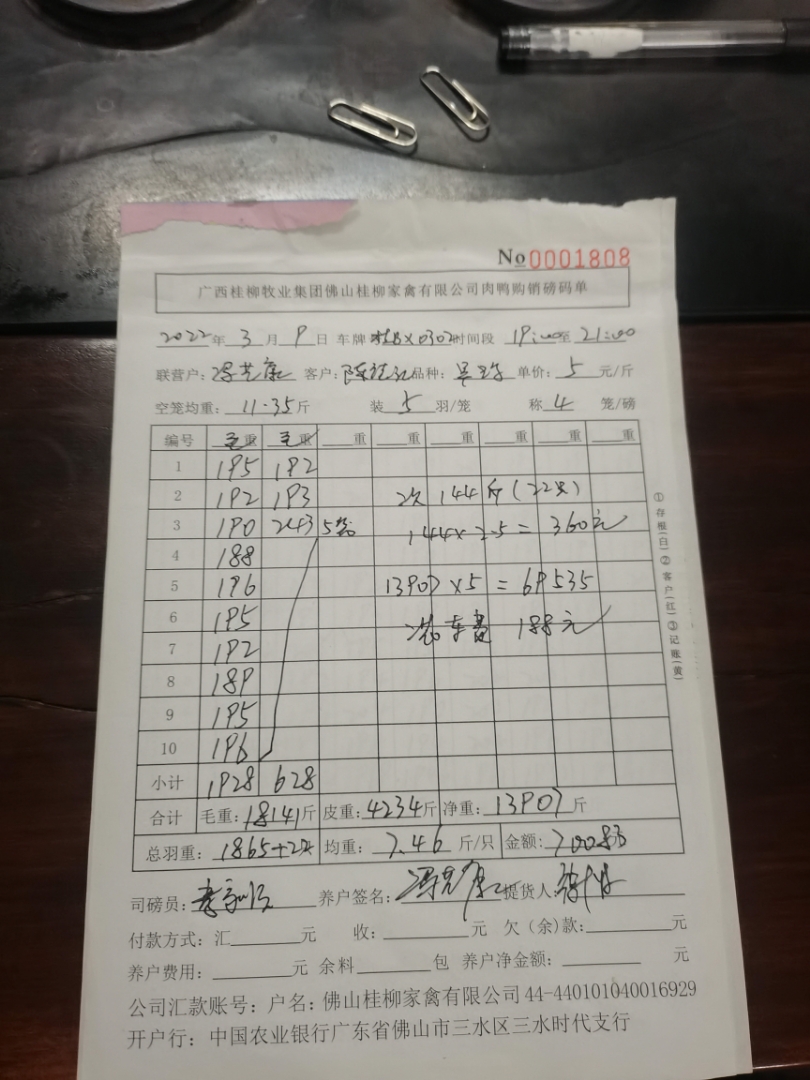 No 0001808
广西桂柳牧业集团佛山桂柳家禽有限公司肉鸭购销磅码单
2022年 3 月 9 日 车牌 X0302 时间段 19:00 至 21:00
联营户: 客户: 品种: 单价: 5 元/斤
空笼均重: 11.35斤 装 5 羽/笼 称 4 笼/磅
编号 毛重 毛重 重 重 重 重 重 重
1 195 192
2 192 193 次 144斤(22只)
3 190 243 5笼 144×2.5=360元
4 188
5 196 13907×5=69535
6 195
7 192 车费 188元
8 189
9 195
10 196
小计 1928 628
合计 毛重:18141斤 皮重:4234斤 净重:13907斤
总羽重: 1865+22 均重: 7.46 斤/只 金额: 70083
司磅员: 养户签名: 提货人:
付款方式:汇 元 收: 元 欠(余)款: 元
养户费用: 元 余料 包 养户净金额: 元
公司汇款账号:户名:佛山桂柳家禽有限公司 44-440101040016929
开户行: 中国农业银行广东省佛山市三水区三水时代支行
①存根(白)②客户(红)③记账(黄)